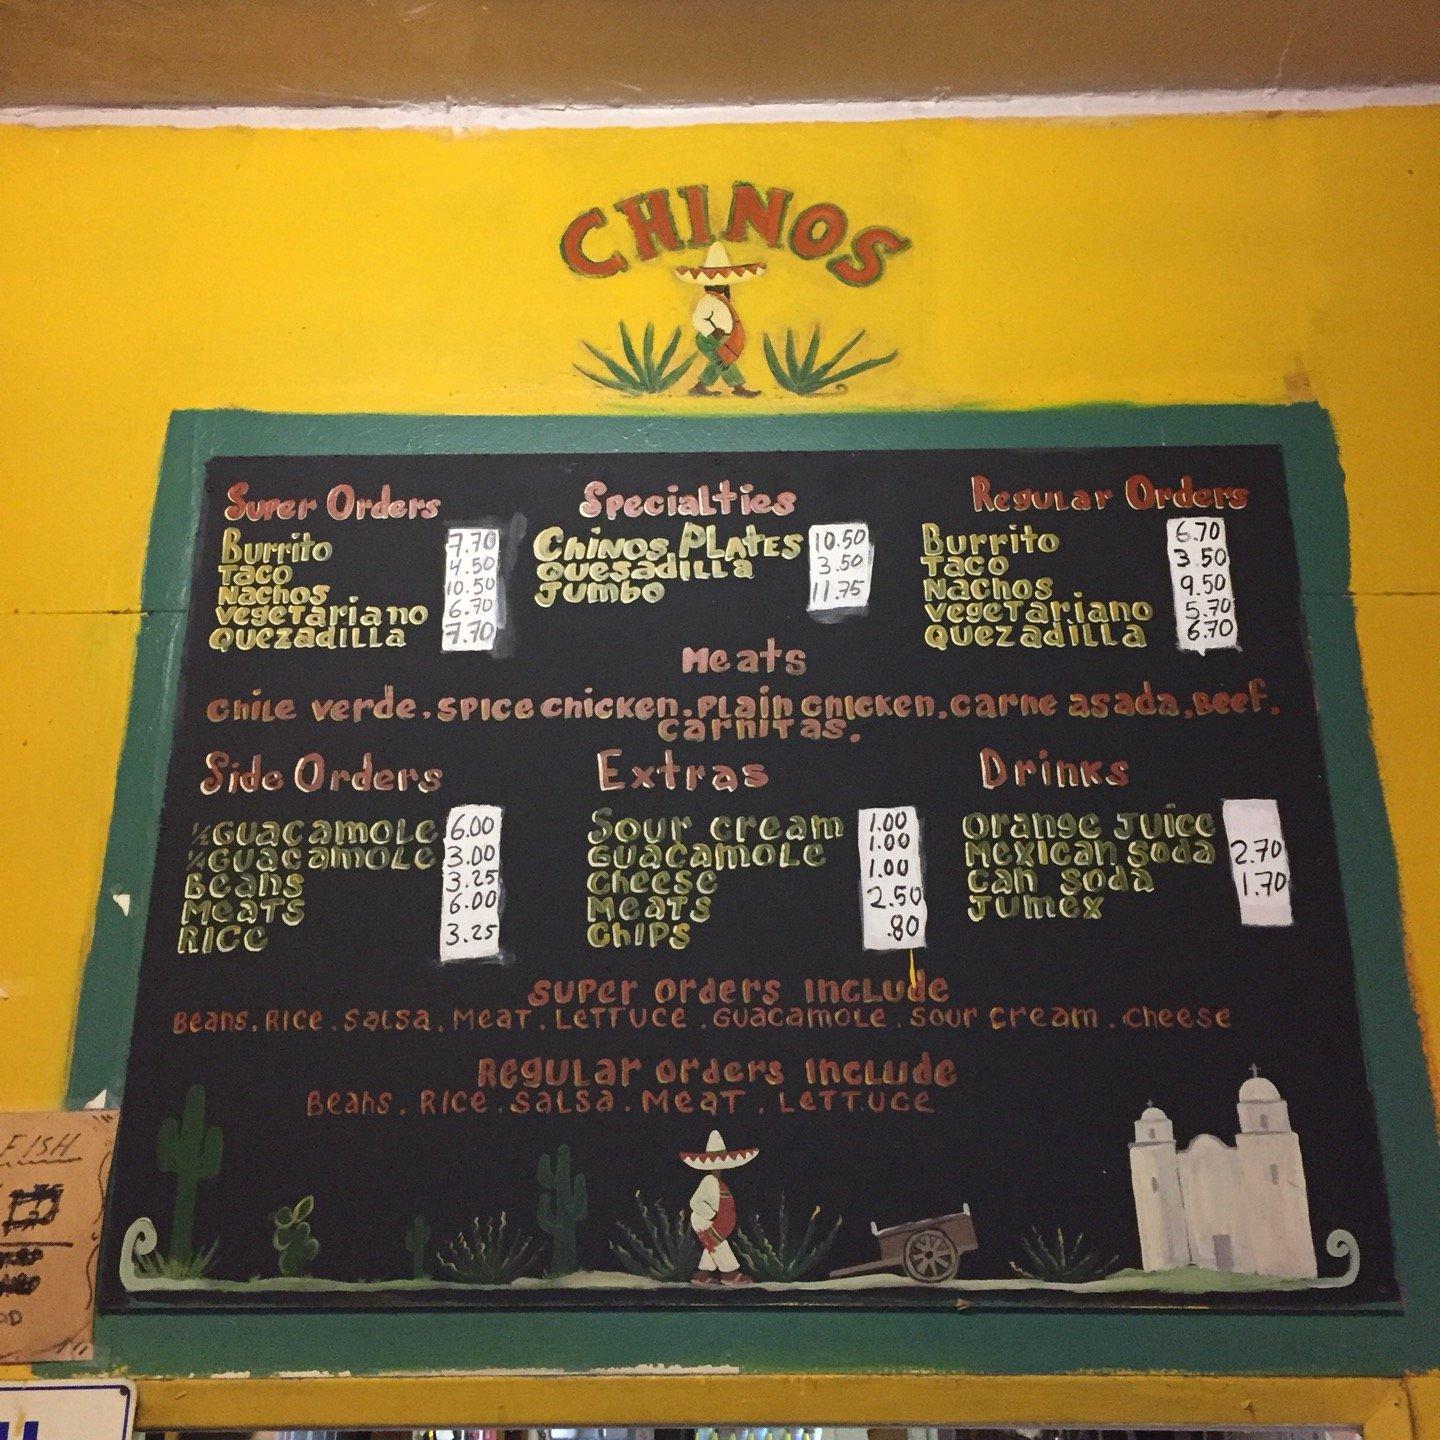 CHINOS
Super Orders
Burrito 7.70
Taco 4.50
Nachos 10.50
Vegetariano 6.70
Quezadilla 7.70
Specialties
Chinos Plates 10.50
Quesadilla 3.50
Jumbo 11.75
Regular Orders
Burrito 6.70
Taco 3.50
Nachos 9.50
Vegetariano 5.70
Quezadilla 6.70
Meats
Chile verde. Spice chicken. Plain chicken. Carne asada. Beef.
Carnitas.
Side Orders
½ Guacamole 6.00
¼ Guacamole 3.00
Beans 3.25
Meats 6.00
Rice 3.25
Extras
Sour cream 1.00
Guacamole 1.00
Cheese 1.00
Meats 2.50
Chips .80
Drinks
Orange Juice
Mexican Soda 2.70
Can Soda 1.70
Jumex
Super orders include
Beans. Rice. Salsa. Meat. Lettuce. Guacamole. Sour cream. cheese
Regular orders include
Beans. Rice. Salsa. Meat. Lettuce
FISH